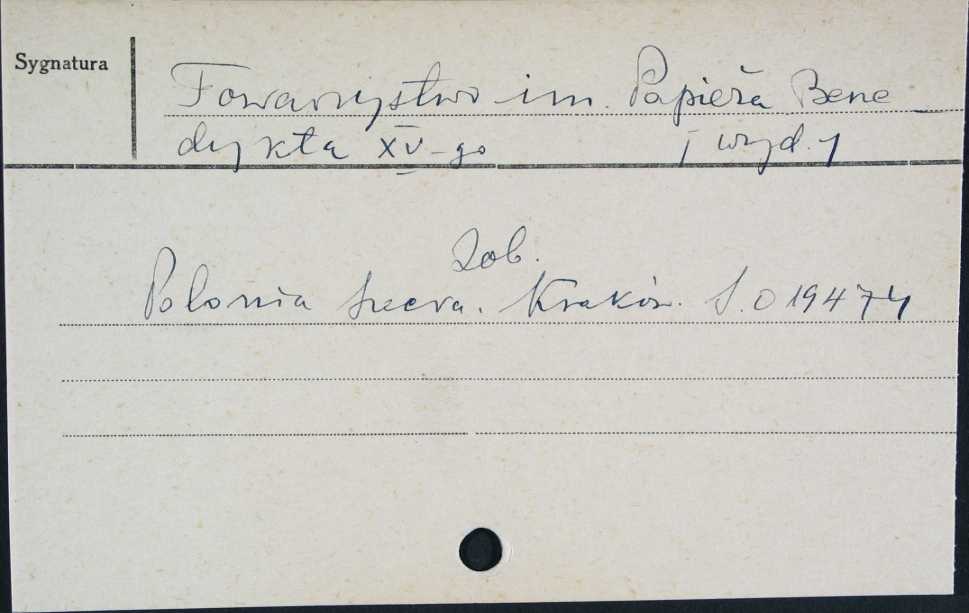 Sygnatura
Towarzystwo im. Papieża Bene
dykta XV-go / wyd. /
Zob.
Polonia Sacra. Kraków. S. 0 19474